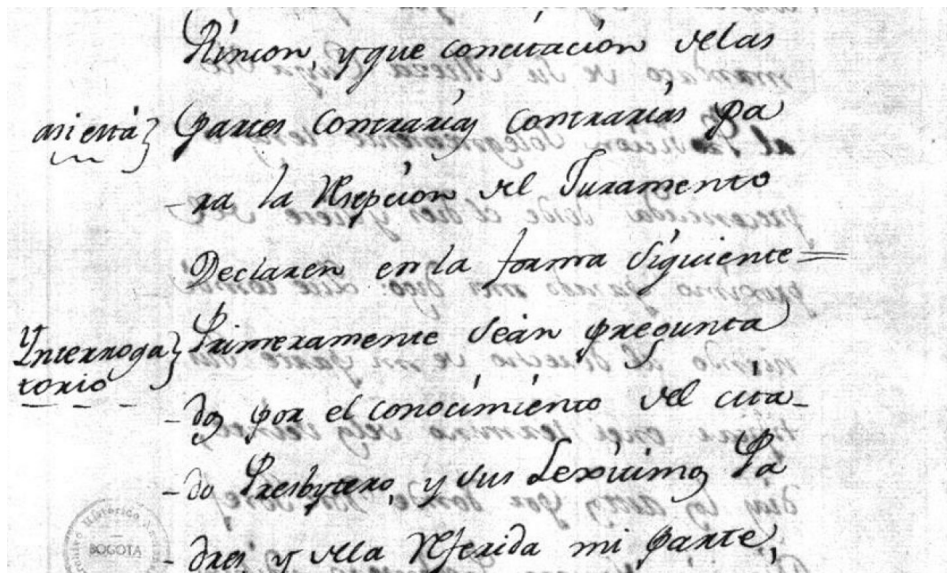 Rincon, y que concitacion delas
asi está}
partes contrarias contrarias pa
ra la Resepcion del Juramento
Declaren en la forma Siguiente=
Primeramente Sean pregunta
Ynterroga
torio}
-dos por el conocimiento del cita-
-do Presbytero, y sus Lexitimos Pa
dres y dela Referida mi parte,
BOGOTA